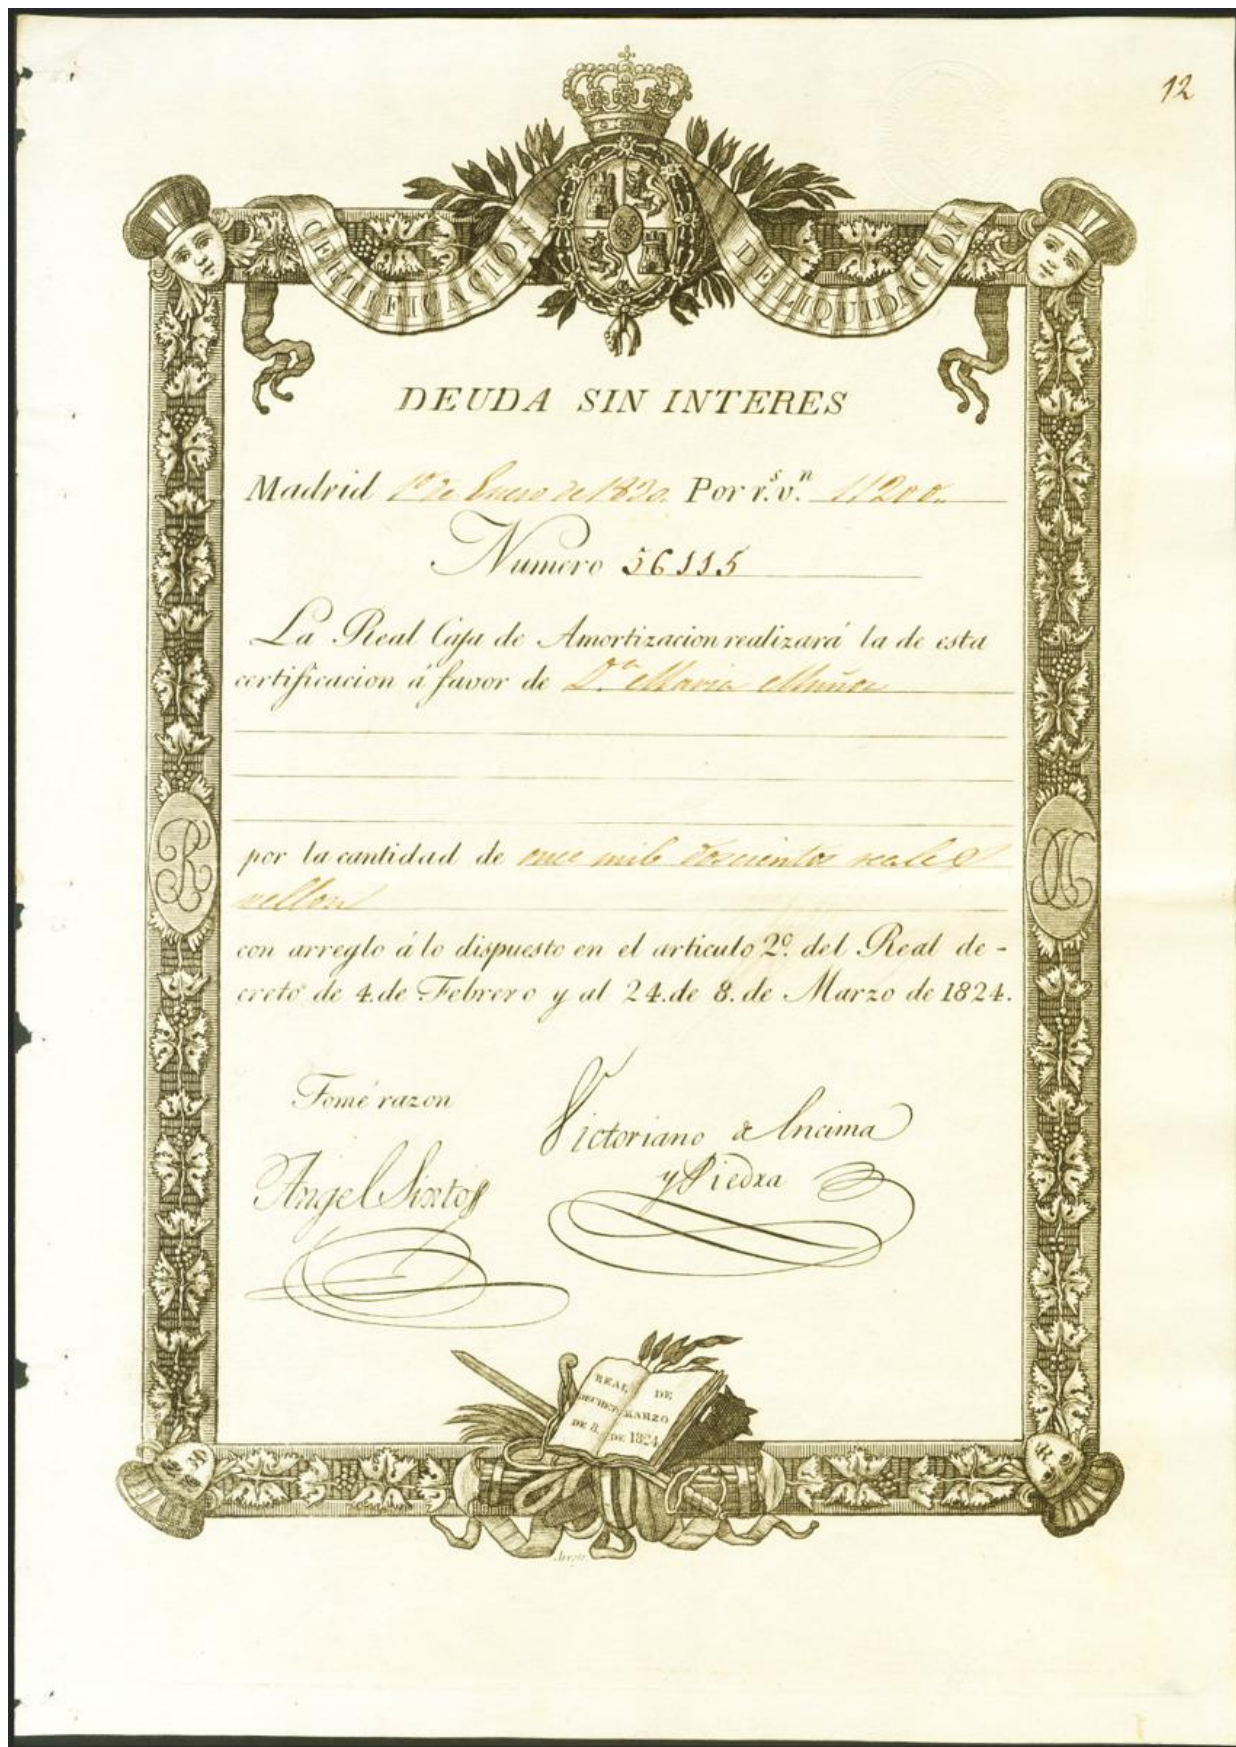 12
CERTIFICACION DE LIQUIDACION
DEUDA SIN INTERES
Madrid 1º de Enero de 1830. Por r.s v.n 11200..
Numero 56115
La Real Caja de Amortizacion realizará la de esta
certificacion á favor de D.ª Maria Muñoz
por la cantidad de once mil doscientos reales
vellon
con arreglo á lo dispuesto en el articulo 2º. del Real de-
creto de 4. de Febrero y al 24. de 8. de Marzo de 1824.
Tomé razon
Victoriano de Encima
y Piedra
Angel Sixtos
R
REAL DECRET.
DE 8.
DE
MARZO
DE 1824